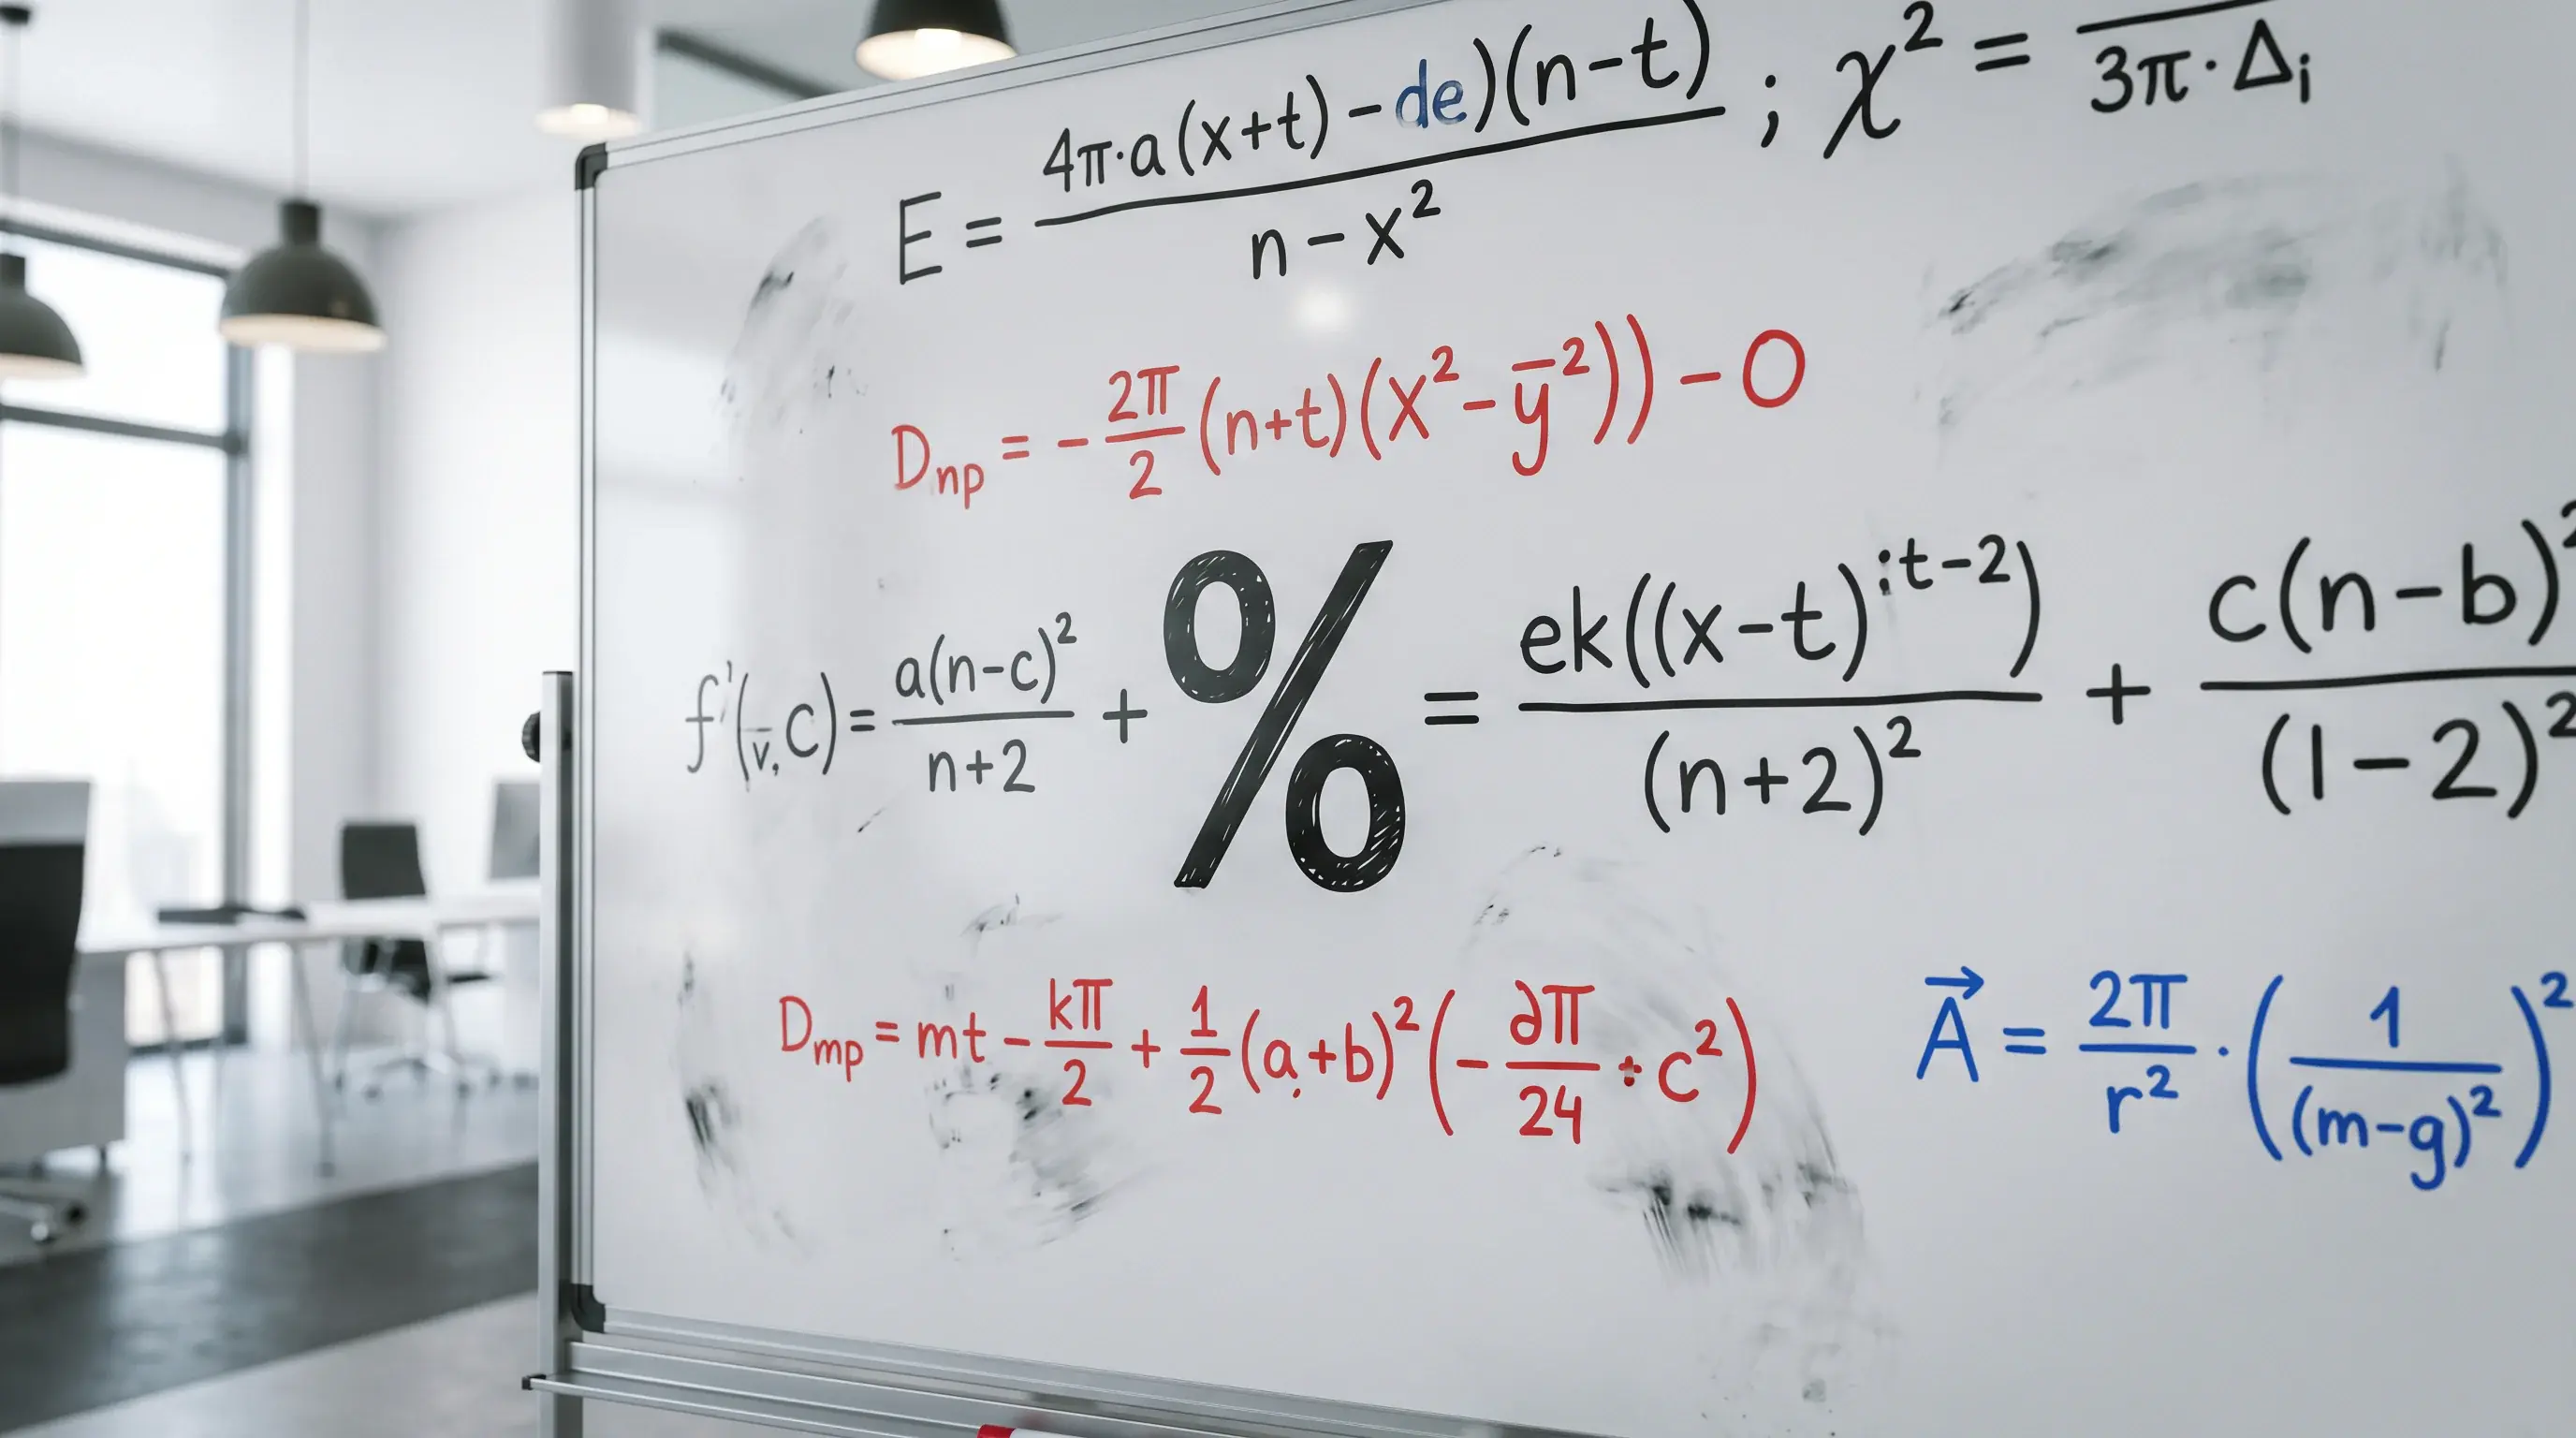 E = 4π·a(x+t)-de)(n-t) / n-x² ; χ² = / 3π·Δᵢ
D_np = - 2π/2 (n+t)(x²-y̅²)) - 0
f'(v̅, c) = a(n-c)² / n+2 + % = ek((x-t)^:t-2) / (n+2)² + c(n-b)² / (1-2)²
D_mp = mt - kπ/2 + 1/2 (a+b)² (- ∂π/24 ÷ c²)
A⃗ = 2π/r² · (1/(m-g)²)²